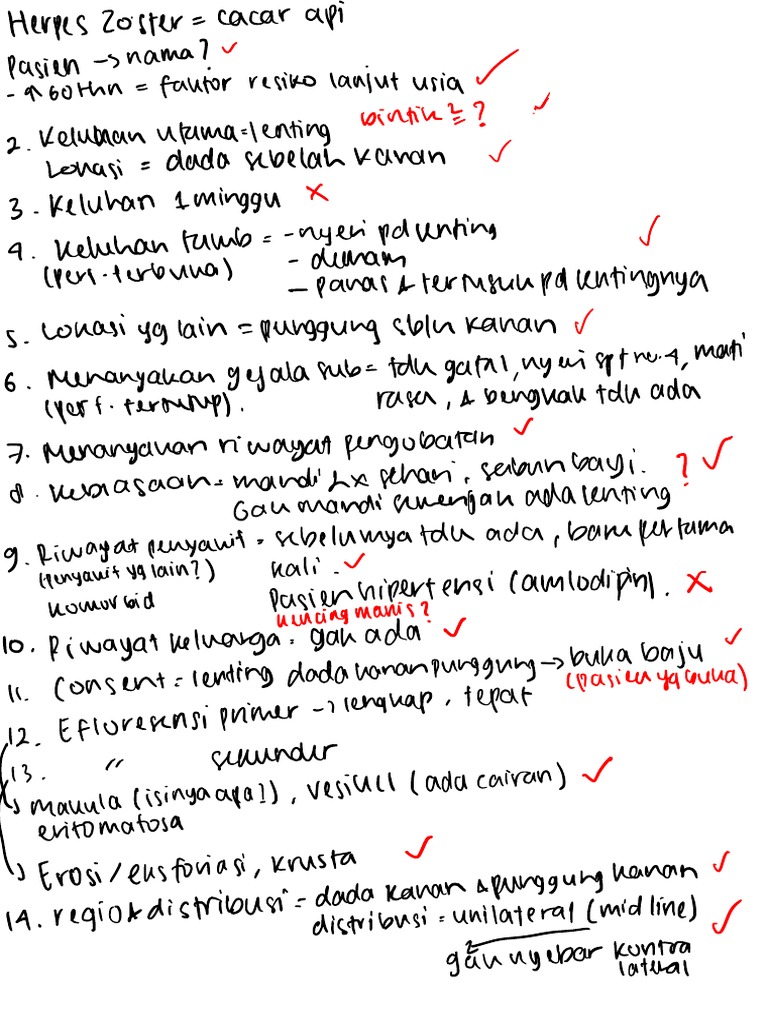 Herpes Zoster = cacar api
Pasien → nama? ✓
- ↑ 60 thn = faktor resiko lanjut usia ✓
bintik2 = ? ✓
2. Keluhan utama = lenting
Lokasi = dada sebelah kanan ✓
3. Keluhan 1 minggu ✗
4. Keluhan tumb = - nyeri pd lenting ✓
(pert. terbuka) - demam
- panas & tertusuk pd lentingnya
5. Lokasi yg lain = punggung sblh kanan ✓
6. Menanyakan gejala sub = tdk gatal, nyeri spt no. 4, mati
(pert. tertutup). rasa, & bengkak tdk ada
7. Menanyakan riwayat pengobatan ✓
8. Kebiasaan = mandi 2x sehari, sabun bayi. ? ✓
Gak mandi semenjak ada lenting
9. Riwayat penyakit = sebelumnya tdk ada, baru pertama
(penyakit yg lain?) kali. ✓
komorbid Pasien hipertensi (amlodipin). ✗
kencing manis?
10. Riwayat keluarga = gak ada ✓
11. Consent = lenting dada kanan punggung → buka baju ✓
(pasien yg buka)
12. Efloresensi primer → lengkap, tepat
13. " sekunder
↳ makula (isinya apa?), vesikel (ada cairan) ✓
eritomatosa
↳ Erosi/eksforiasi, krusta ✓
14. regio & distribusi = dada kanan & punggung kanan ✓
distribusi = unilateral (mid line) ✓
gak nyebar2 kontra
lateral